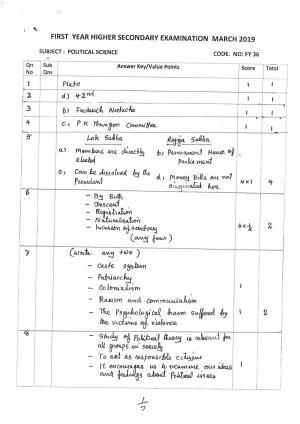 FIRST YEAR HIGHER SECONDARY EXAMINATION MARCH 2019
SUBJECT : POLITICAL SCIENCE CODE. NO: FY 36
Qn No Sub Qns Answer Key/Value Points Score Total
1 Plato 1 1
2 d) 42nd 1 1
3 b) Frederich Nietzche 1 1
4 c) P K Thungon Committee 1 1
5 Lok Sabha Rajya Sabha
a) Members are directly b) Permanent House of
elected Parliament
c) Can be dissolved by the d) Money Bills are not
President originated here 4x1 4
6 - By Birth
- Descent
- Registration
- Naturalisation 4x½ 2
- Inclusion of territory
(any four)
7 (Write any two)
- Caste System
- Patriarchy
- Colonialism 1
- Racism and communalism
- The Psychological harm suffered by 1 2
the victims of violence
8 - Study of Political theory is relevant for
all groups in society
- To act as responsible citizens
- It encourages us to examine our ideas 1
and feelings about Political issues